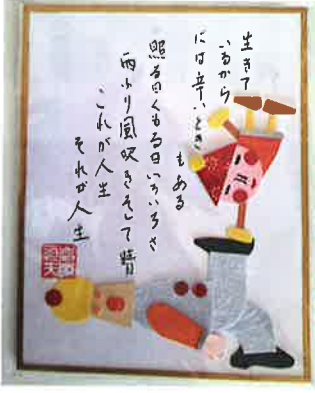 生きて
いるから
には辛いとき
もある
照る日くもる日いろいろさ
雨ふり風吹きそして晴
これが人生
それが人生